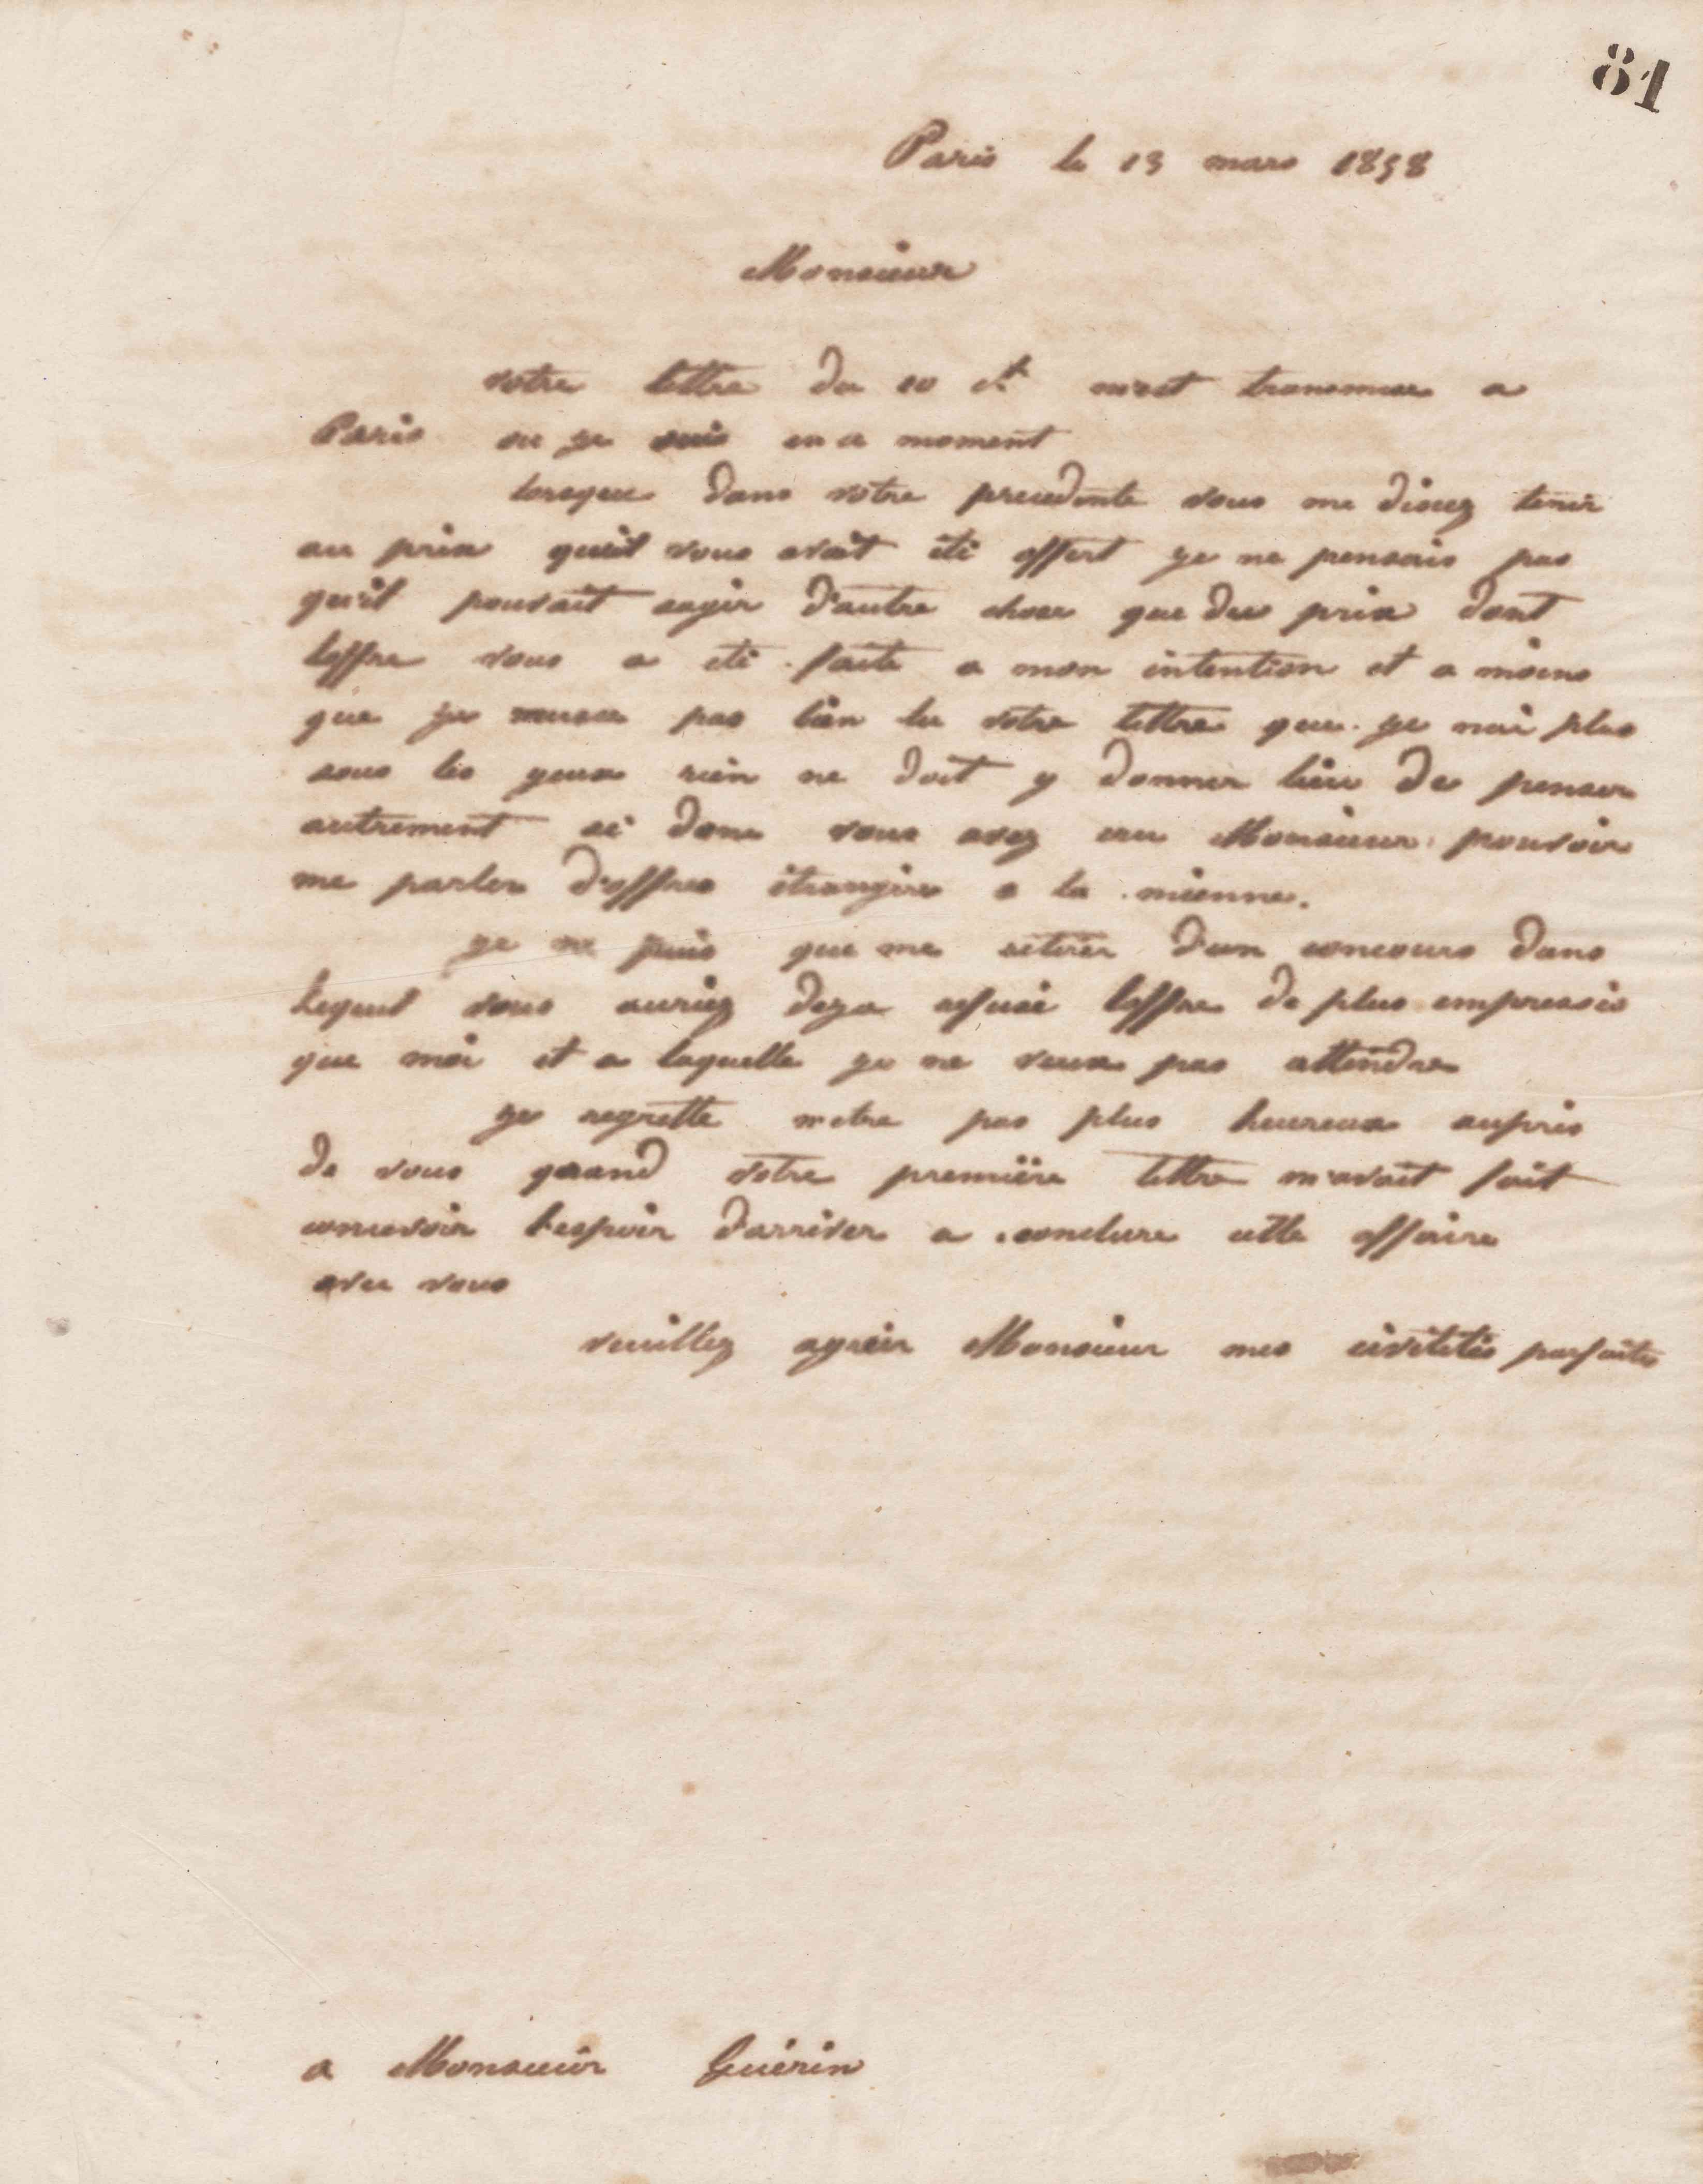 81
Paris le 13 mars 1858
Monsieur
votre lettre du 10 ct m'est transmise a
Paris ou je suis en ce moment
lorsque dans votre precedente vous me disiez tenir
au prix qu'il vous avait été offert je ne pensais pas
qu'il pouvait sagir d'autre chose que du prix dont
loffre vous a eté faite a mon intention et a moins
que je pas bien lu votre lettre que je nai plus
sous les yeux rien ne doit y donner lieu de penser
autrement si donc vous avez cru Monsieur pouvoir
me parler d'offres étrangère a la mienne.
je ne puis que me retirer d'un concours dans
lequel vous auriez deja refusé loffre de plus empressés
que moi et a laquelle je ne veux pas attendre
je regrette netre pas plus heureux auprès
de vous quand votre première lettre m'avait fait
concevoir lespoir darriver a conclure cette affaire
avec vous
veuillez agréer Monsieur mes civilités parfaites
a Monsieur Guérin